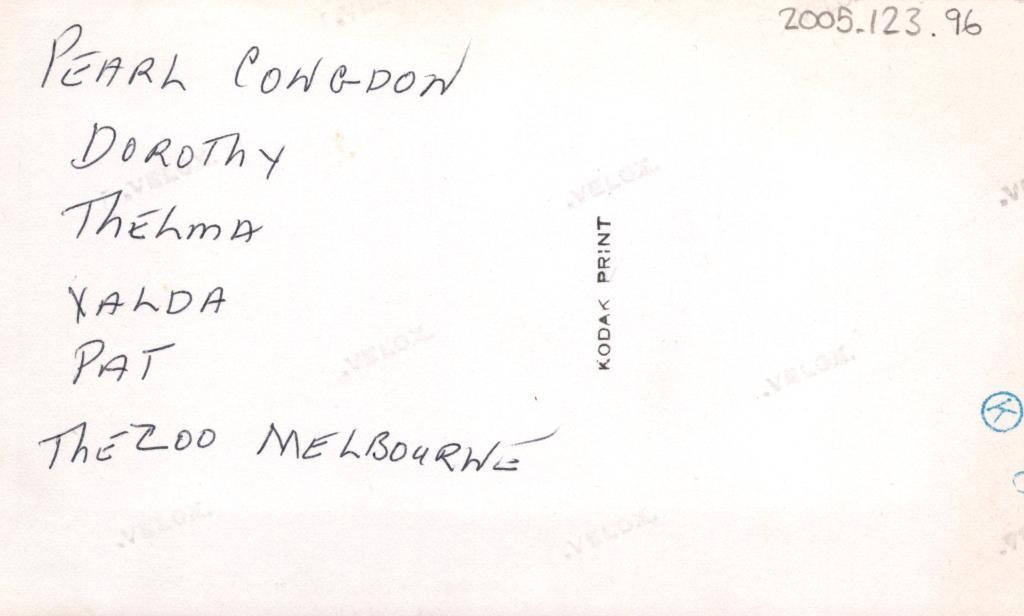 2005.123.96
PEARL CONGDON
DOROTHY
THELMA
VALDA
PAT
THE ZOO MELBOURNE
KODAK PRINT
VELOX
VELOX
VELOX
VELOX
VELOX
VELOX
K